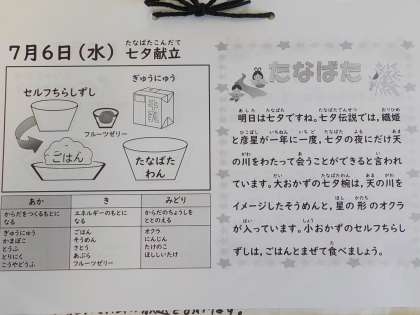 7月6日（水） 七夕献立
たなばたこんだて
セルフちらしずし
ぎゅうにゅう
牛乳
フルーツゼリー
ごはん
たなばた
わん
あか
き
みどり
からだをつくるもとに
なる
エネルギーのもとに
なる
からだのちょうしを
ととのえる
ぎゅうにゅう
かまぼこ
とうふ
とりにく
こうやどうふ
ごはん
そうめん
さとう
あぶら
フルーツゼリー
オクラ
にんじん
たけのこ
ほししいたけ
たなばた
明日は七夕ですね。七夕伝説では、織姫
と彦星が一年に一度、七夕の夜にだけ天
の川をわたって会うことができると言われ
ています。大おかずの七夕椀は、天の川を
イメージしたそうめんと、星の形のオクラ
が入っています。小おかずのセルフちらし
ずしは、ごはんとまぜて食べましょう。